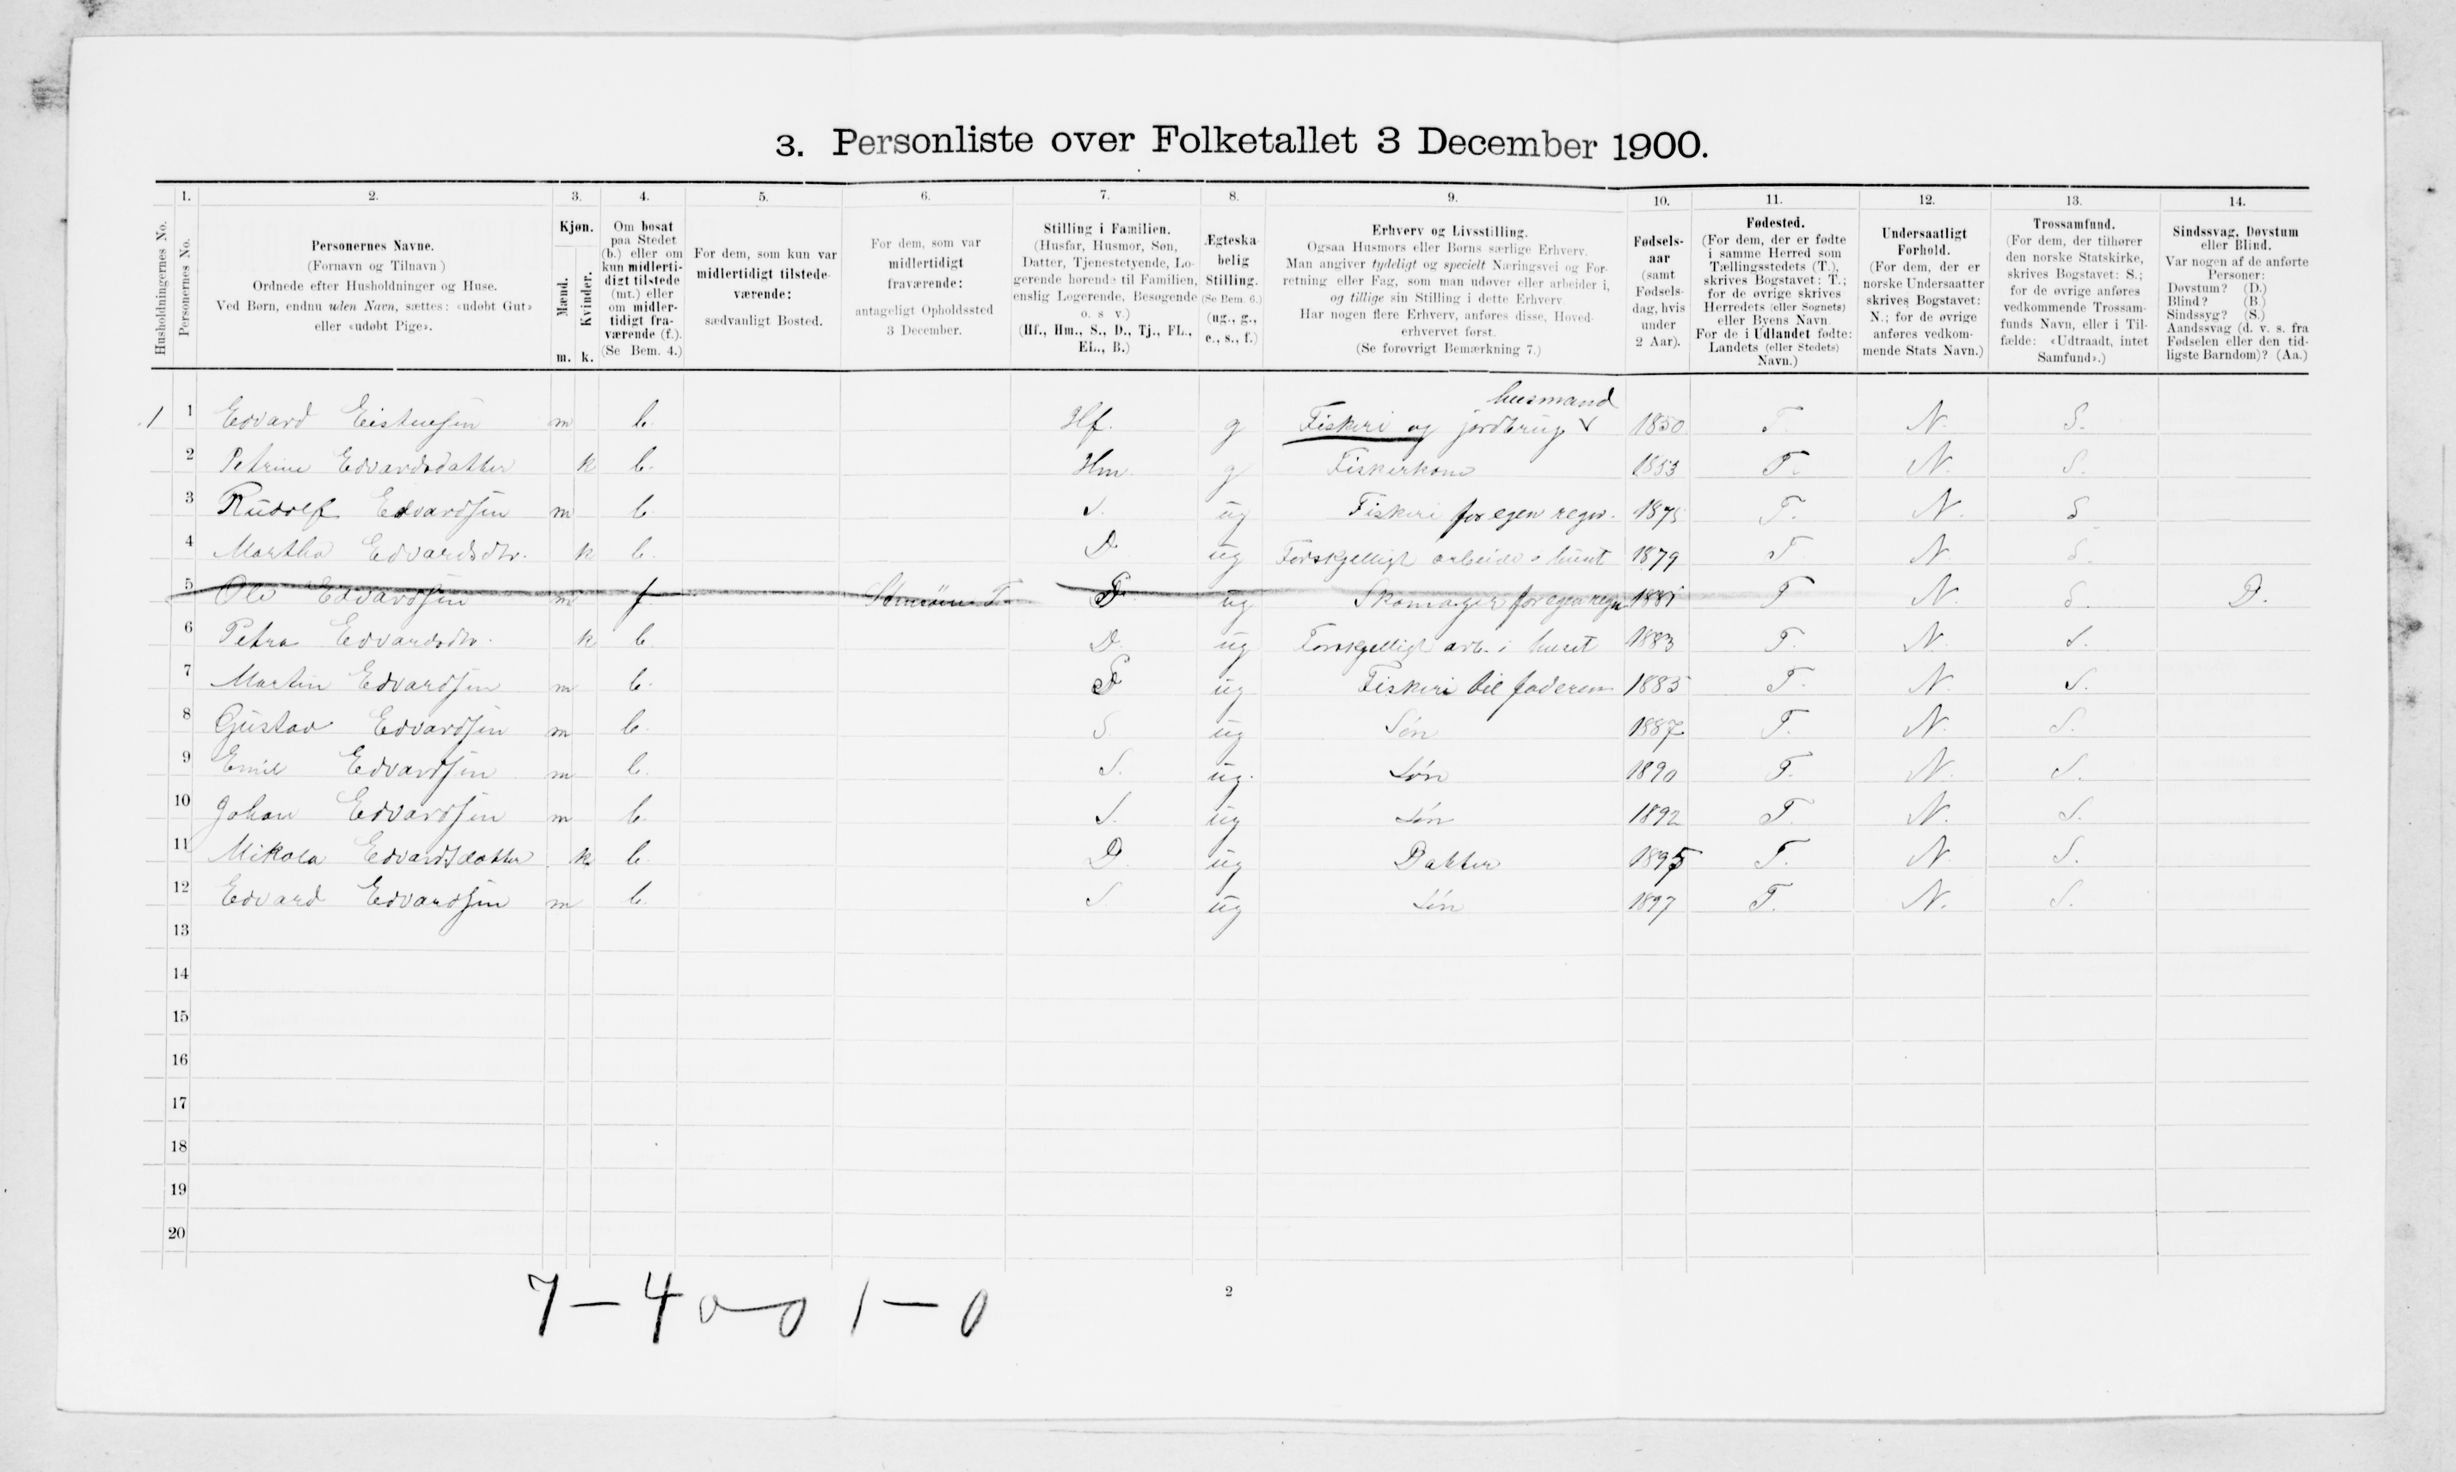 3. Personliste over Folketallet 3 December 1900.
1. 2. 3. 4. 5. 6. 7. 8. 9. 10. 11. 12. 13. 14.
Husholdningernes No.
Personernes No.
Personernes Navne.
(Fornavn og Tilnavn)
Ordnede efter Husholdninger og Huse.
Ved Børn, endnu uden Navn, sættes: «udøbt Gut»
eller «udøbt Pige».
Kjøn.
Mænd.
Kvinder.
m. k.
Om bosat
paa Stedet
(b.) eller om
kun midlerti-
digt tilstede
(mt.) eller
om midler-
tidigt fra-
værende (f.).
(Se Bem. 4.)
For dem, som kun var
midlertidigt tilstede-
værende:
sædvanligt Bosted.
For dem, som var
midlertidigt
fraværende:
antageligt Opholdssted
3 December.
Stilling i Familien.
(Husfar, Husmor, Søn,
Datter, Tjenestetyende, Lo-
gerende hørende til Familien,
enslig Logerende, Besøgende
o. s v.)
(Hf., Hm., S., D., Tj., FL.,
EL., B.)
Ægteska-
belig
Stilling.
(Se Bem. 6.)
(ug., g.,
e., s., f.)
Erhverv og Livsstilling.
Ogsaa Husmors eller Børns særlige Erhverv.
Man angiver tydeligt og specielt Næringsvei og For-
retning eller Fag, som man udøver eller arbeider i,
og tillige sin Stilling i dette Erhverv.
Har nogen flere Erhverv, anføres disse, Hoved-
erhvervet først.
(Se forøvrigt Bemærkning 7.)
Fødsels-
aar
(samt
Fødsels-
dag, hvis
under
2 Aar).
Fødested.
(For dem, der er fødte
i samme Herred som
Tællingsstedets (T.),
skrives Bogstavet: T.;
for de øvrige skrives
Herredets (eller Sognets)
eller Byens Navn.
For de i Udlandet fødte:
Landets (eller Stedets)
Navn.)
Undersaatligt
Forhold.
(For dem, der er
norske Undersaatter
skrives Bogstavet:
N.; for de øvrige
anføres vedkom-
mende Stats Navn.)
Trossamfund.
(For dem, der tilhører
den norske Statskirke,
skrives Bogstavet: S.;
for de øvrige anføres
vedkommende Trossam-
funds Navn, eller i Til-
fælde: «Udtraadt, intet
Samfund».)
Sindssvag, Døvstum
eller Blind.
Var nogen af de anførte
Personer:
Døvstum? (D.)
Blind? (B.)
Sindssyg? (S.)
Aandssvag (d. v. s. fra
Fødselen eller den tid-
ligste Barndom)? (Aa.)
husmand
1 1 Edvard m b. Hf. g Fiskeri og jordbrug v 1850 T. N. S.
2 Petrine Edvardsdatter k b. Hm. g Fiskerkone 1853 T. N. S.
3 Rudolf Edvardsen m b. S. ug Fiskeri for egen regn. 1875 T. N. S
4 Martha Edvardsdtr. k b. D ug Forskjelligt arbeide i huset 1879 T N S.
5 Ole Edvardsen m f T ug Skomager for egen regn 1881 T N. S. D.
6 Petra Edvardsdtr. k b. D. ug Forskjelligt arb. i huset 1883 T. N. S.
7 Martin Edvardsen m b. S ug Fiskeri til faderen 1885 T. N. S.
8 Gustav Edvardsen m b. S. ug Søn 1887 T. N. S.
9 Emil Edvardsen m b. S. ug. Søn 1890 T. N. S.
10 Johan Edvardsen m b. S. ug Søn 1892 T. N. S.
11 Mikola Edvardsdatter k b. D. ug Datter 1895 T. N. S.
12 Edvard Edvardsen m b. S. ug Søn 1897 T. N. S.
13
14
15
16
17
18
19
20
7 – 4 0 – 0 1 – 0
2